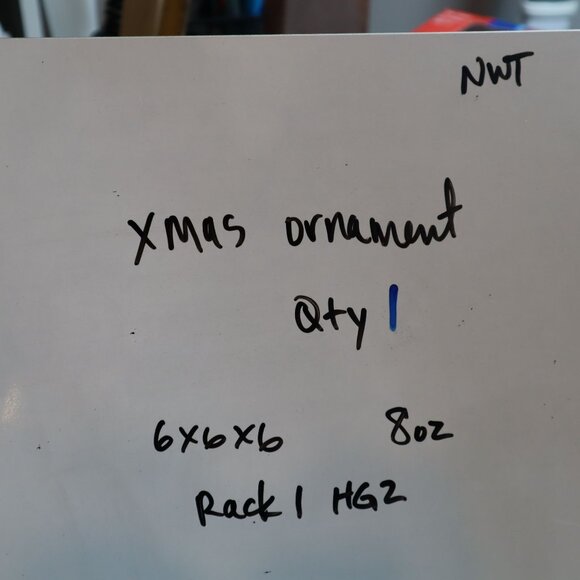 NWT
xmas ornament
Qty 1
6x6x6 8oz
Rack 1 HG2